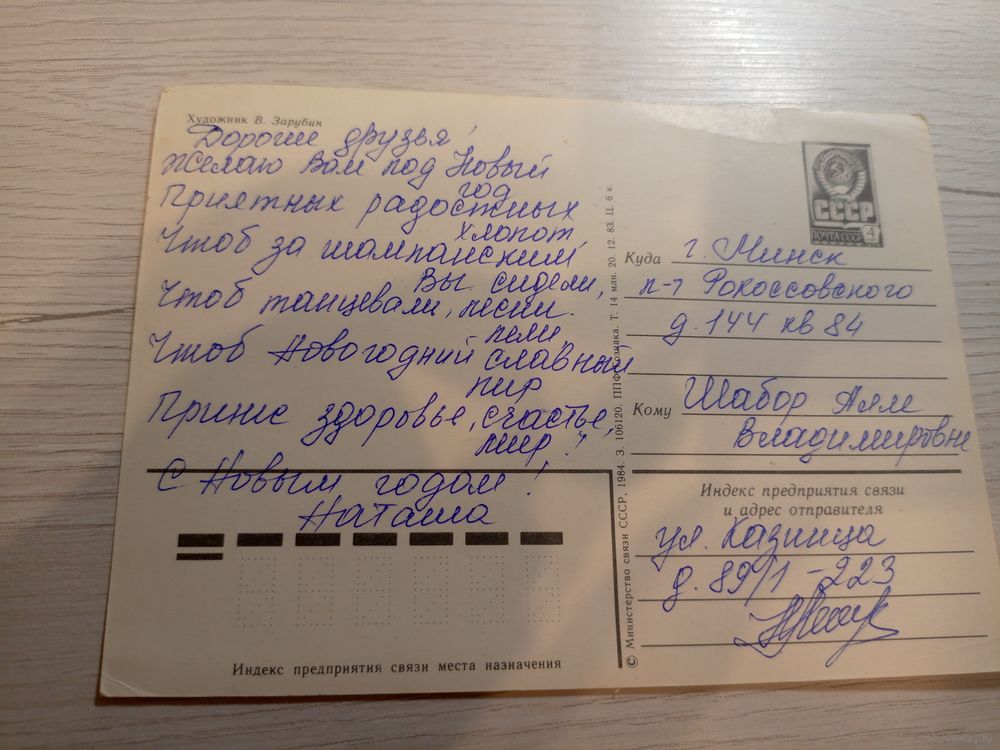 Художник В. Зарубин
Дорогие друзья!
Желаю Вам под Новый
год
Приятных радостных
хлопот,
Чтоб за шампанским
Вы сидели,
Чтоб танцевали, песни
пели
Чтоб Новогодний славный
пир
Принес здоровье, счастье,
мир!
С Новым годом!
Наташа
Индекс предприятия связи места назначения
© Министерство связи СССР, 1984. З. 106120. ППФ Гознака. Т. 14 млн. 20. 12. 83. Ц. 6 к.
СССР
ПОЧТА СССР 4
Куда г. Минск
п-т Рокоссовского
д. 144 кв 84
Кому Шабор Алле
Владимировне
Индекс предприятия связи
и адрес отправителя
ул. Казинца
д. 89/1 - 223